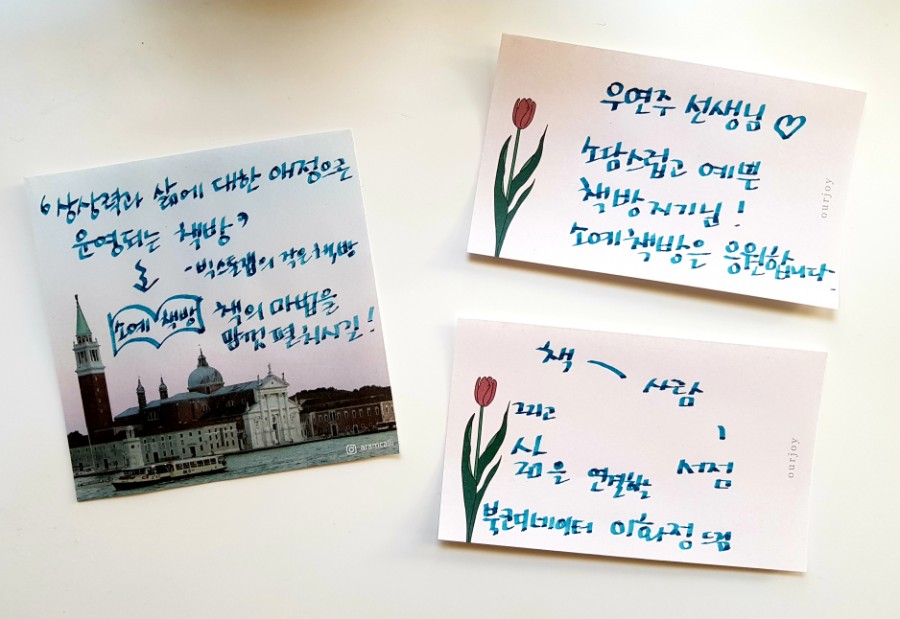 '상상력과 삶에 대한 애정으로
운영되는 책방'
- 빅스톤갭의 작은 책방
소예 책방
책의 마법을
맘껏 펼치시길!
aramcalli
우연주 선생님♡
소담스럽고 예쁜
책방지기님!
소예책방을 응원합니다-
ourjoy
책
사람
그리고
서점
삶을 연결하는
북코디네이터 이화정 드림
ourjoy